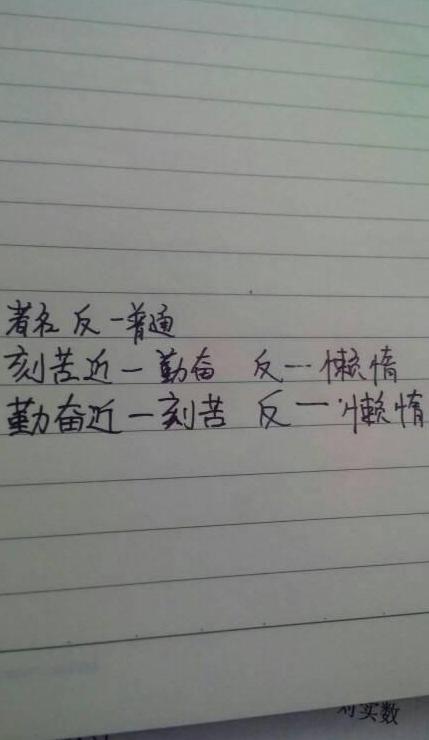 著名 反一普通
刻苦近一勤奋 反一懒惰
勤奋近一刻苦 反一懒惰
对实数